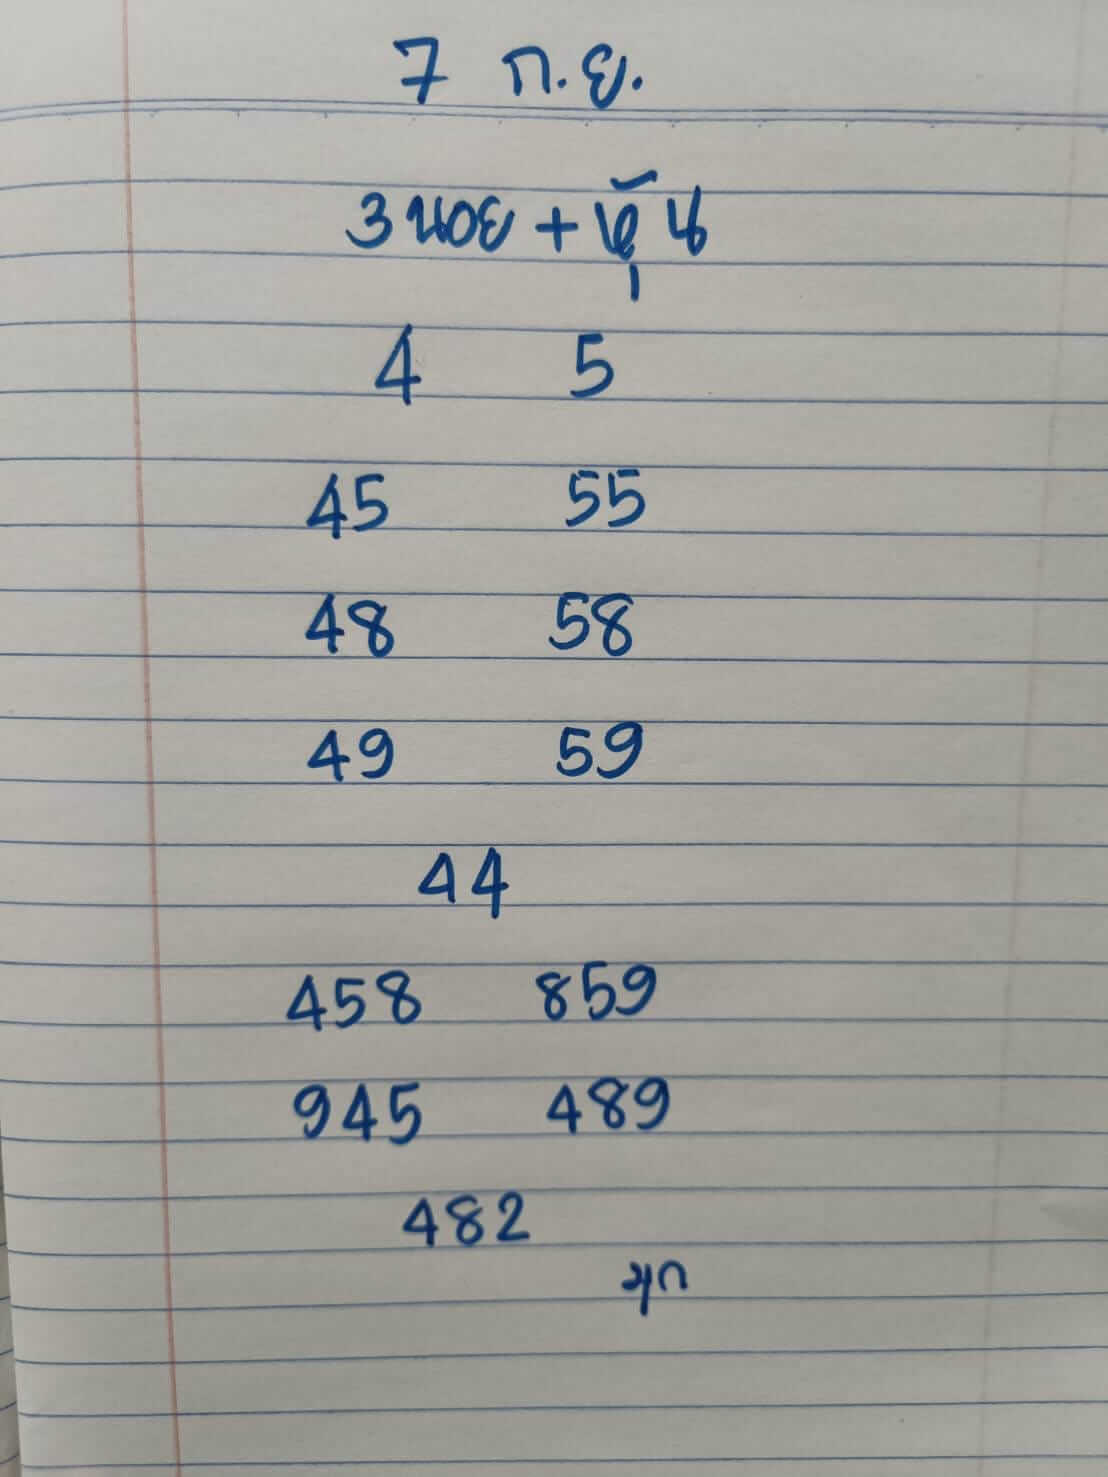 7 ก.ย.
3 นอย + หุ้น
4 5
45 55
48 58
49 59
44
458 859
945 489
482
มุก